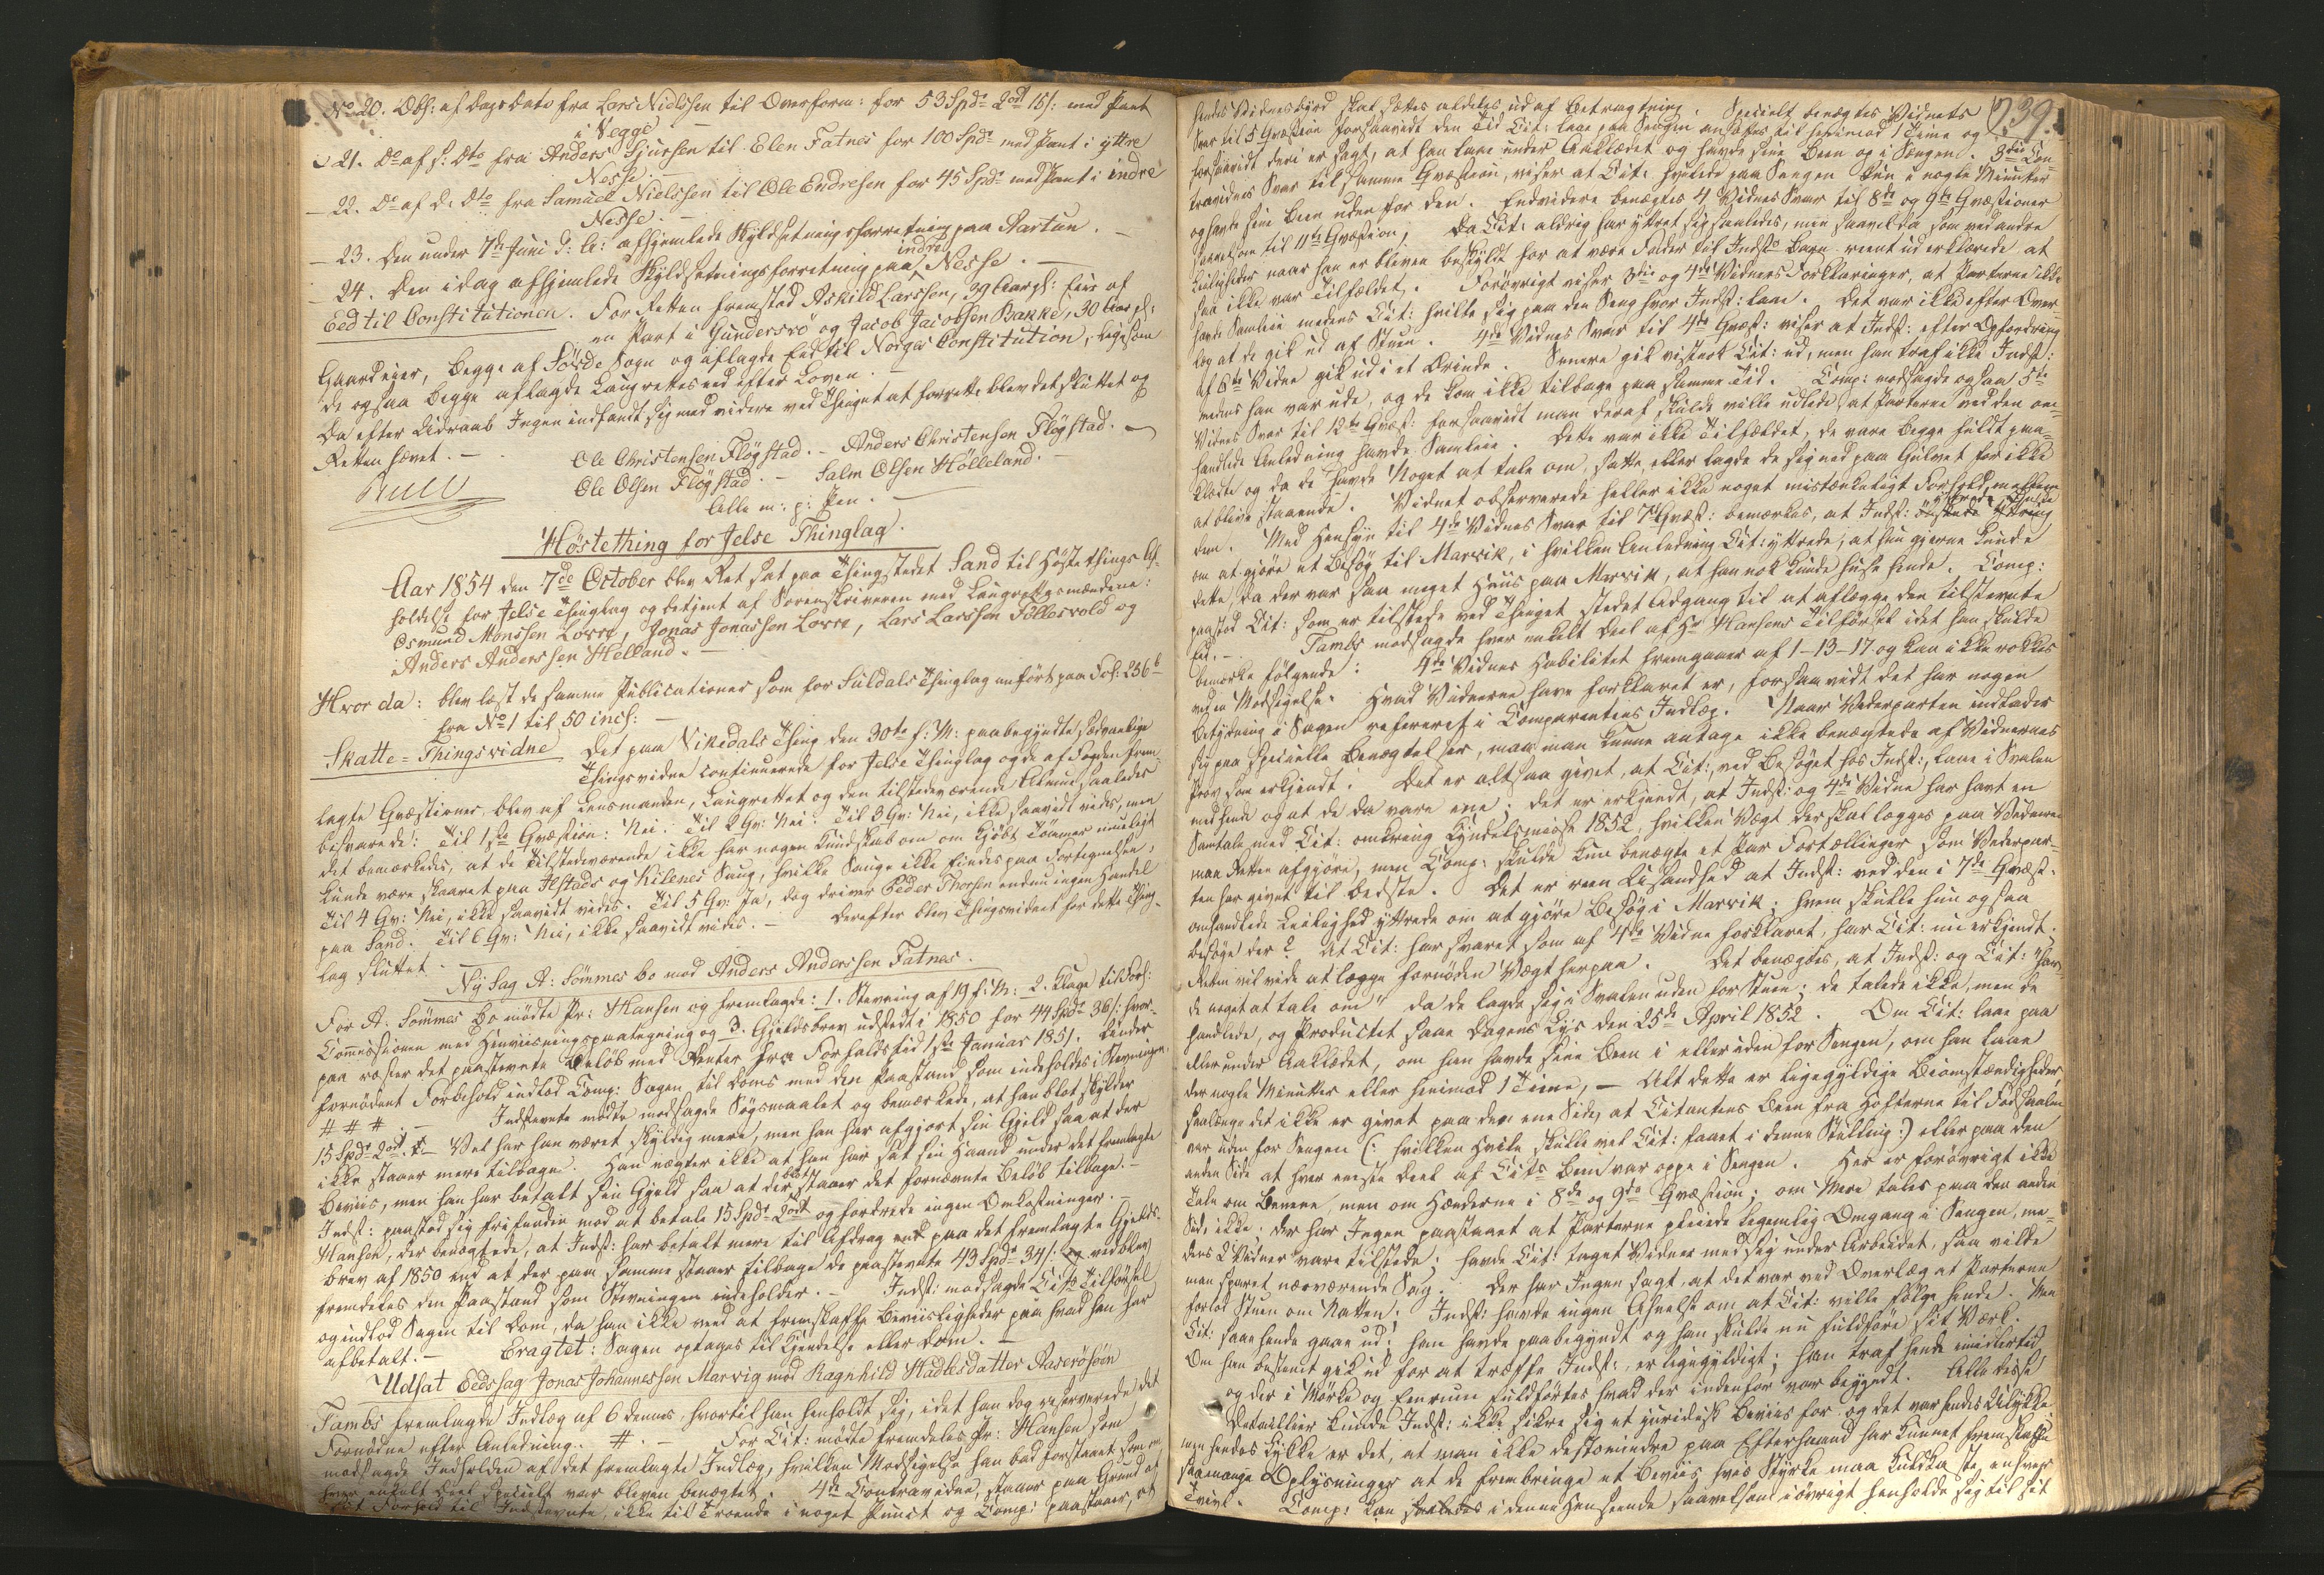 No 20. Obl: af Dags Dato fra Lars Nielssen til Overform: for 53 Spd 2 ort 15 s: med Pant
i Vegge
- 21. Do af s: Dto fra Anders Sjurssen til Elen Fatnes for 100 Spd med Pant i yttre
Nesse. -
- 22. Do af d. Dto fra Samuel Nielssen til Ole Endresen for 45 Spd med Pant i indre
Nesse. -
- 23. Den under 7de Juni d: A: afhjemlede Skyldsetningsforretning paa Aartun. -
- 24. Den idag afhjemlede Skyldsetningsforretning paa indre Nesse. -
Eed til Constitutionen. For Retten fremstod Askild Larssen, 39 Aar gl: Eier af
en Part i Gundersrø og Jacob Jacobsen Bakke, 30 Aar gl:
Gaardeier, begge af Sørde Sogn og aflagde Eed til Norges Constitution, ligesom
de ogsaa begge aflagde Laugretteseed efter Loven. -
Da efter Udraab Ingen indfandt sig med videre ved Thinget at forrette blev det sluttet og
Retten hævet. -
Ole Christensen Fløgstad. - Anders Christensen Fløgstad. -
Ole Olsen Fløgstad. - Salm Olsen Hølleland. -
Alle m: p: Pen. -
Høstething for Jelse Thinglag.
Aar 1854 den 7de October blev Ret sat paa Thingstedet Sand til Høstethings Af-
holdelse for Jelse Thinglag og betjent af Sorenskriveren med Laugrettesmændene:
Osmund Monssen Lovre, Jonas Jonassen Lovre, Lars Larssen Tøllesvold og
Anders Anderssen Helland. -
Hvor da: blev læst de samme Publicationer som for Suldals Thinglag anført paa Fol: 236 b
fra No 1 til 50 incl: -
Skatte-Thingsvidne Det paa Vikedals Thing den 30te f: M: paabegyndte sædvanlige
Thingsvidne continuerede for Jelse Thinglag og de af Fogden frem-
lagte Qvæstioner blev af Lensmanden, Laugrettet og den tilstedeværende Almue saaledes
besvarede: Til 1ste Qvæstion: Nei. Til 2 Qv: Nei. Til 3 Qv: Nei, ikke saavidt vides, men
det bemærkedes, at de Tilstedeværende ikke har nogen Kundskab om om kjøbt Tømmer mueligt
kunde være skaaret paa Ilstads og Kilenes Saug, hvilke Sauge ikke findes paa Fortegnelsen.
Til 4 Qv: Nei, ikke saavidt vides. Til 5 Qv: Ja, dog driver Peder Thorsen endnu ingen Handel
paa Sand. Til 6 Qv: Nei, ikke saavidt vides. - Derefter blev Thingsvidnet for dette Thing-
lag sluttet. -
Ny Sag A: Sømmes bo mod Anders Anderssen Fatnes.
For A. Sømmes Bo mødte Pr: Hansen og fremlagde: 1. Stevning af 19 f: M: 2. Klage til Forl:
Commissionen med Henviisningspaategning og 3. Gjeldsbrev udstedt i 1850 for 44 Spd 36 s: hvor-
paa rester det paastevnte Beløb med Renter fra Forfaldstid 1ste Januar 1851. Under
fornødent Forbehold indlod Comp: Sagen til Doms med den Paastand som indeholdes i Stevningen.
# # # - Indstevnte mødte modsagde Søgsmaalet og bemærkede, at han blot skylder
15 Spd 2 ort. - Vel har han været skyldig mere, men han har afgjort sin Gjeld saa at der
ikke staaer mere tilbage. Han nægter ikke at han har sat sin Haand under det fremlagte
Beviis, men han har betalt sin Gjeld saa at der blot staaer det fornævnte Beløb tilbage. -
Indst: paastod sig frifunden mod at betale 15 Spd 2 ort og fordrede ingen Omkostninger. -
Hansen, der benægtede, at Indst: har betalt mere til Afdrag paa det fremlagte Gjelds-
brev af 1850 end at der paa samme staaer tilbage de paastevnte 43 Spd 34 s: vedblev
fremdeles den Paastand som Stevningen indeholder. - Indst: modsagde Cits Tilførsel
og indlod Sagen til Dom, da han ikke veed at fremskaffe Beviisligheder paa hvad han har
afbetalt. - Eragtet: Sagen optages til Kjendelse eller Dom. -
Udsat Eedssag Jonas Johannessen Marvig mod Ragnhild Hadlesdatter Aaserøsøen
Tambs fremlagde Indlæg af 6 dennes, hvortil han henholdt sig, idet han dog reserverede det
Fornødne efter Anledning. # . - For Cit: mødte fremdeles Pr: Hansen som
modsagde Indholden af det fremlagte Indlæg, hvilken Modsigelse han bad forstaaet som om
hver enkelt Deel specielt var bleven benægtet. 4de Contravidne, staaer paa Grund af
sit Forhold til Indstevnte, ikke til Troende i noget Punct og Comp: paastaaer, at
239.
hendes Vidnesbyrd skal sættes aldeles ud af Betragtning. Specielt benægtes Vidnets
Svar til 5 Qvæstion forsaavidt den Tid Cit: laae paa Sengen ansættes til henimod 1 Time og
forsaavidt deri er sagt, at han laae under Aaklædet og havde sine Been op i Sengen. 3die Con-
travidnes Svar til samme Qvæstion, viser at Cit: hvilede paa Sengen kun i nogle Minutter
og havde sine Been uden for den. Endvidere benægtes 4 Vidnes Svar til 8de og 9de Qvæstioner
saavelsom til 11te Qvæstion, da Cit: aldrig har yttret sig saaledes, men saavel da som ved andre
Leiligheder naar han er bleven beskyldt for at være Fader til Indsts Barn reent ud erklærede at
saa ikke var Tilfældet. Forøvrigt viser 3die og 4de Vidners Forklaringer, at Parterne ikke
havde Samleie medens Cit: hvilte sig paa den Seng hvor Indst: laae. Det var ikke efter Over-
læg at de gik ud af Stuen. 4de Vidnes Svar til 4de Qvæst: viser at Indst: efter Opfordring
af 6te Vidne gik ud i et Ærinde. Senere gik vistnok Cit: ud, men han traf ikke Indst:
medens han var ude, og de kom ikke tilbage paa samme Tid. Comp: modsagde ogsaa 5te
Vidnes Svar til 12te Qvæst: forsaavidt man deraf skulde ville udlede, at Parterne ved den om-
handlede Anledning havde Samleie. Dette var ikke Tilfældet, de vare begge fuldt paa-
klædte og da de havde Noget at tale om, satte eller lagde de sig ned paa Gulvet for ikke
at blive staaende. Vidnet observerede heller ikke noget mistænkeligt Forhold mellem
dem. Med Hensyn til 4de Vidnes Svar til 7de Qvæst: bemærkes, at Indst: yttrede Ønske
om at gjøre et Besøg til Marvik, i hvilken Anledning Cit: yttrede, at hun gjerne kunde
dette, da der var saa meget Huus paa Marvik, at han nok kunde huse hende. Comp:
paastod Cit: som er tilstede ved Thinget stedet Adgang til at aflægge den tilstevnte
Eed. - Tambs modsagde hver enkelt Deel af Hr Hansens Tilførsel idet han skulde
bemærke følgende: 4de Vidnes Habilitet fremgaaer af 1-13-17 og kan ikke rokkes
ved en Modsigelse. Hvad Vidnerne have forklaret er, forsaavidt det har nogen
Betydning i Sagen refereret i Comparentens Indlæg. Naar Vederparten indlader
sig paa specielle Benægtelser, maa man kunne antage ikke benægtede af Vidnernes
Prov som erkjendt. Det er altsaa givet, at Cit:, ved Besøget hos Indst:, laae i Svalen
med hende og at de da vare ene; det er erkjendt, at Indst: og 4de Vidne har havt en
Samtale med Cit: omkring Kyndelsmisse 1852, hvilken Vægt der skal lægges paa Vidnerne
maa Retten afgjøre, men Comp: skulde kun benægte et Par Fortællinger som Vederpar-
ten har givet til bedste. Det er reen Usandhed at Indst: ved den i 7de Qvæst:
omhandlede Leilighed yttrede om at gjøre Besøg i Marvik; hvem skulle hun ogsaa
besøge der? At Cit: har svaret som af 4de Vidne forklaret, har Cit: nu erkjendt.
Retten vil vide at lægge fornøden Vægt herpaa. Det benægtes, at Indst: og Cit: "hav-
de noget at tale om" da de lagde sig i Svalen uden for Stuen; de talede ikke, men de
handlede, og Productet saae Dagens Lys den 25de April 1852. Om Cit: laae paa
eller under Aaklædet, om han havde sine Been i eller uden for Sengen, om han laae
der nogle Minutter eller henimod 1 Time, - Alt dette er ligegyldige Biomstændigheder,
saalænge det ikke er givet paa den ene Side, at Citantens Been fra Hofterne til Fodsaalen
var uden for Sengen (: hvilken Hvile skulle vel Cit: faaet i denne Stilling :) eller paa den
anden Side at hver eneste Deel af Cits Been var oppe i Sengen. Her er forøvrigt ikke
Tale om Benene, men om Hænderne i 8de og 9de Qvæstion; om Mere tales paa den anden
Side ikke. Der har Ingen paastaaet at Parterne pleiede legemlig Omgang i Sengen, me-
dens 2 Vidner vare tilstede; havde Cit: taget Vidner med sig under Arbeidet, saa vilde
man sparet nærværende Sag. Der har Ingen sagt, at det var ved Overlæg at Parterne
forlod Stuen om Natten; Indst: havde ingen Ahnelse om at Cit: ville følge hende. Men
Cit: saae hende gaae ud; han havde paabegyndt og han skulde nu fuldføre sit Værk.
Om han bestemt gik ud for at træffe Indst:, er ligegyldigt; han traf hende imidlertid
og der i Mørke og Eenrum fuldførtes hvad der indenfor var begyndt. Alle disse
Detaillier kunde Indst: ikke sikre sig et juridisk Beviis for og det var hendes Ulykke
men hendes Lykke er det, at man ikke destomindre paa Efterhaand har kunnet fremskaffe
saamange Oplysninger at de frembringe et Beviis, hvis Styrke maa udslette enhver
Tvivl. Comp: kan i denne Henseende saavelsom iøvrigt henholde sig til sit